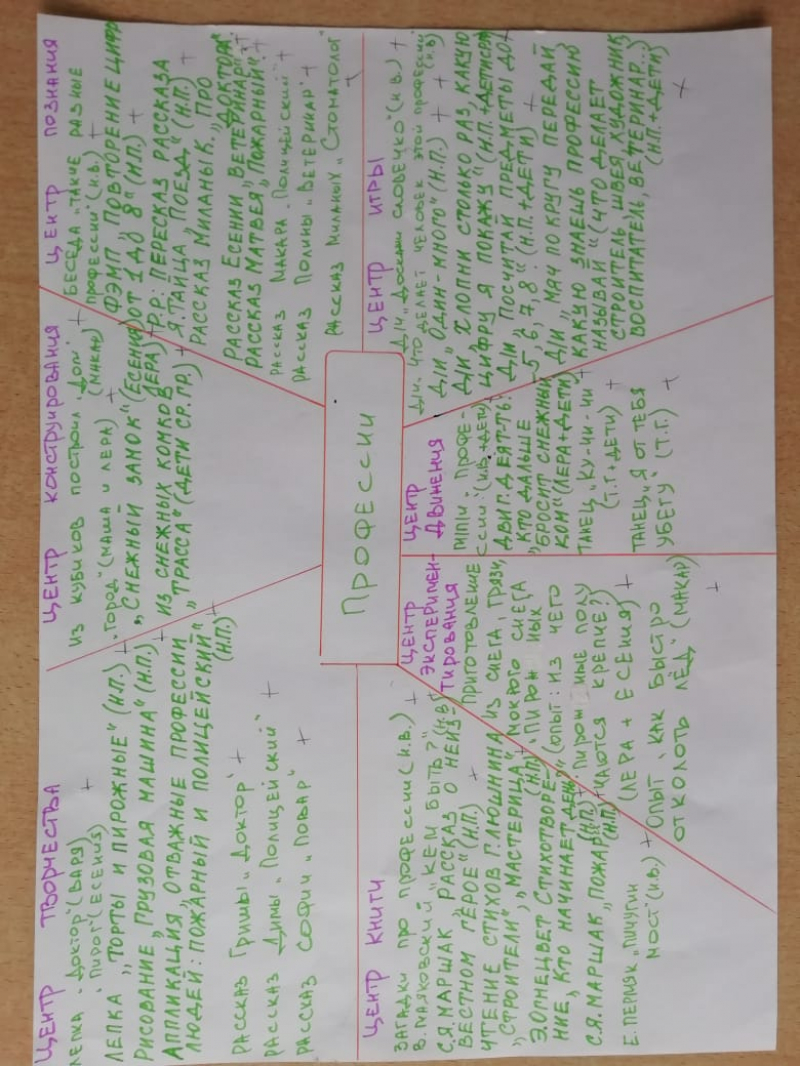 Профессии
ЦЕНТР ТВОРЧЕСТВА
ЛЕПКА „Доктор“ (ВАРЯ) +
„Пирог“ (ЕСЕНИЯ)
ЛЕПКА „ТОРТЫ И ПИРОЖНЫЕ“ (Н.П.) +
РИСОВАНИЕ „ГРУЗОВАЯ МАШИНА“ (Н.П.) +
АППЛИКАЦИЯ „ОТВАЖНЫЕ ПРОФЕССИИ
ЛЮДЕЙ: ПОЖАРНЫЙ И ПОЛИЦЕЙСКИЙ“ +
(Н.П.)
РАССКАЗ Гриши „Доктор“ +
РАССКАЗ Димы „Полицейский“ +
РАССКАЗ Софии „Повар“ +
ЦЕНТР КОНСТРУИРОВАНИЯ
ИЗ КУБИКОВ ПОСТРОИЛ „Дом“ +
(МАКАР)
„Город“ (МАША И ЛЕРА) +
„СНЕЖНЫЙ ЗАМОК“ (ЕСЕНИЯ,
ИЗ СНЕЖНЫХ КОМКОВ ЛЕРА) +
„ТРАССА“ (ДЕТИ СР.ГР.) +
ЦЕНТР ПОЗНАНИЯ
БЕСЕДА „ТАКИЕ РАЗНЫЕ
ПРОФЕССИИ“ (И.В.) +
ФЭМП „ПОВТОРЕНИЕ ЦИФР
ОТ 1 ДО 8“ (Н.П.) +
Р.Р: ПЕРЕСКАЗ РАССКАЗА
Я.ТАЙЦА „ПОЕЗД“ (Н.П.) +
РАССКАЗ МИЛАНЫ К. ПРО
„ДОКТОРА“ +
РАССКАЗ ЕСЕНИИ „ВЕТЕРИНАР“ +
РАССКАЗ МАТВЕЯ „ПОЖАРНЫЙ“ +
РАССКАЗ МАКАРА „Полицейский“ +
РАССКАЗ Полины „ВЕТЕРИНАР“ +
РАССКАЗ МИЛАНЫ Х „Стоматолог“ +
ЦЕНТР КНИГИ
ЗАГАДКИ ПРО ПРОФЕССИИ (И.В.) +
В.МАЯКОВСКИЙ „КЕМ БЫТЬ?“ (И.В) +
С.Я.МАРШАК „РАССКАЗ О НЕИЗ-
ВЕСТНОМ ГЕРОЕ“ (Н.П.) +
ЧТЕНИЕ СТИХОВ Г.ЛЮШНИНА
„СТРОИТЕЛИ“, „МАСТЕРИЦА“
(Н.П)
Э.ОГНЕЦВЕТ СТИХОТВОРЕ-
НИЕ „КТО НАЧИНАЕТ ДЕНЬ“
(Н.П.) +
С.Я.МАРШАК „ПОЖАР“
(Н.П.) +
Е. ПЕРМЯК „ПИЧУГИН
МОСТ“ (И.В.) +
ЦЕНТР
ЭКСПЕРИМЕН-
ТИРОВАНИЯ
ПРИГОТОВЛЕНИЕ
ИЗ СНЕГА, ГРЯЗИ,
МОКРОГО СНЕГА
„ПИРОЖНЫХ“
(ОПЫТ: ИЗ ЧЕГО
ПИРОЖНЫЕ ПОЛУ
ЧАЮТСЯ КРЕПЧЕ?) +
(ЛЕРА + ЕСЕНИЯ)
ОПЫТ „КАК БЫСТРО
ОТКОЛОТЬ ЛЁД“ (МАКАР) +
ЦЕНТР
ДВИЖЕНИЯ
ДВИГ. ДЕЯТ-ТЬ:
КТО ДАЛЬШЕ
БРОСИТ СНЕЖНЫЙ
КОМ“ (ЛЕРА+ДЕТИ)
ТАНЕЦ „КУ-ЧИ-ЧИ“ +
(Т.Г.+ДЕТИ)
ТАНЕЦ „Я ОТ ТЕБЯ +
УБЕГУ“ (Т.Г.) +
ЦЕНТР ИГРЫ
Д/И „ДОСКАЖИ СЛОВЕЧКО“ (И.В.) +
Д/И „ЧТО ДЕЛАЕТ ЧЕЛОВЕК ЭТОЙ ПРОФЕССИИ“
(И.В) +
Д/И „ОДИН-МНОГО“ (Н.П.) +
Д/И „ХЛОПНИ СТОЛЬКО РАЗ, КАКУЮ
ЦИФРУ Я ПОКАЖУ“ (Н.П.+ДЕТИ СР.ГР)
Д/И „ПОСЧИТАЙ ПРЕДМЕТЫ ДО
5, 6, 7, 8“ (Н.П.+ДЕТИ) +
Д/И „МЯЧ ПО КРУГУ ПЕРЕДАЙ
КАКУЮ ЗНАЕШЬ ПРОФЕССИЮ
НАЗЫВАЙ“ (ЧТО ДЕЛАЕТ
СТРОИТЕЛЬ ШВЕЯ, ХУДОЖНИК
ВОСПИТАТЕЛЬ, ВЕТЕРИНАР...)
(Н.П.+ДЕТИ) +